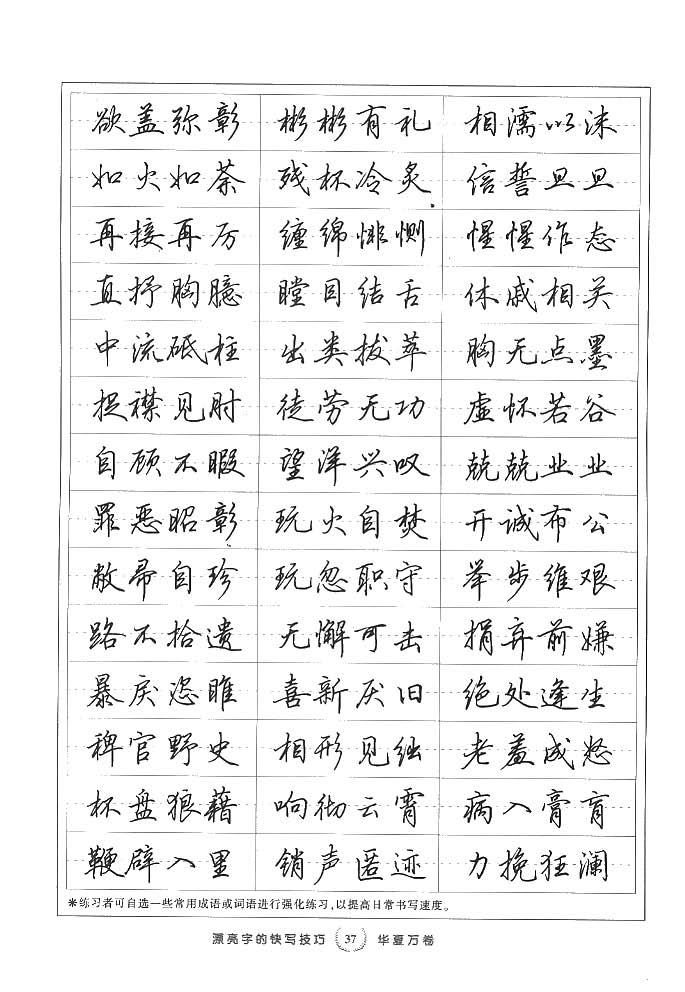 欲盖弥彰 彬彬有礼 相濡以沫
如火如荼 残杯冷炙 信誓旦旦
再接再厉 缠绵悱恻 惺惺作态
直抒胸臆 瞠目结舌 休戚相关
中流砥柱 出类拔萃 胸无点墨
捉襟见肘 徒劳无功 虚怀若谷
自顾不暇 望洋兴叹 兢兢业业
罪恶昭彰 玩火自焚 开诚布公
敝帚自珍 玩忽职守 举步维艰
路不拾遗 无懈可击 捐弃前嫌
暴戾恣睢 喜新厌旧 绝处逢生
稗官野史 相形见绌 老羞成怒
杯盘狼藉 响彻云霄 病入膏肓
鞭辟入里 销声匿迹 力挽狂澜
※练习者可自选一些常用成语或词语进行强化练习,以提高日常书写速度。
漂亮字的快写技巧 37 华夏万卷